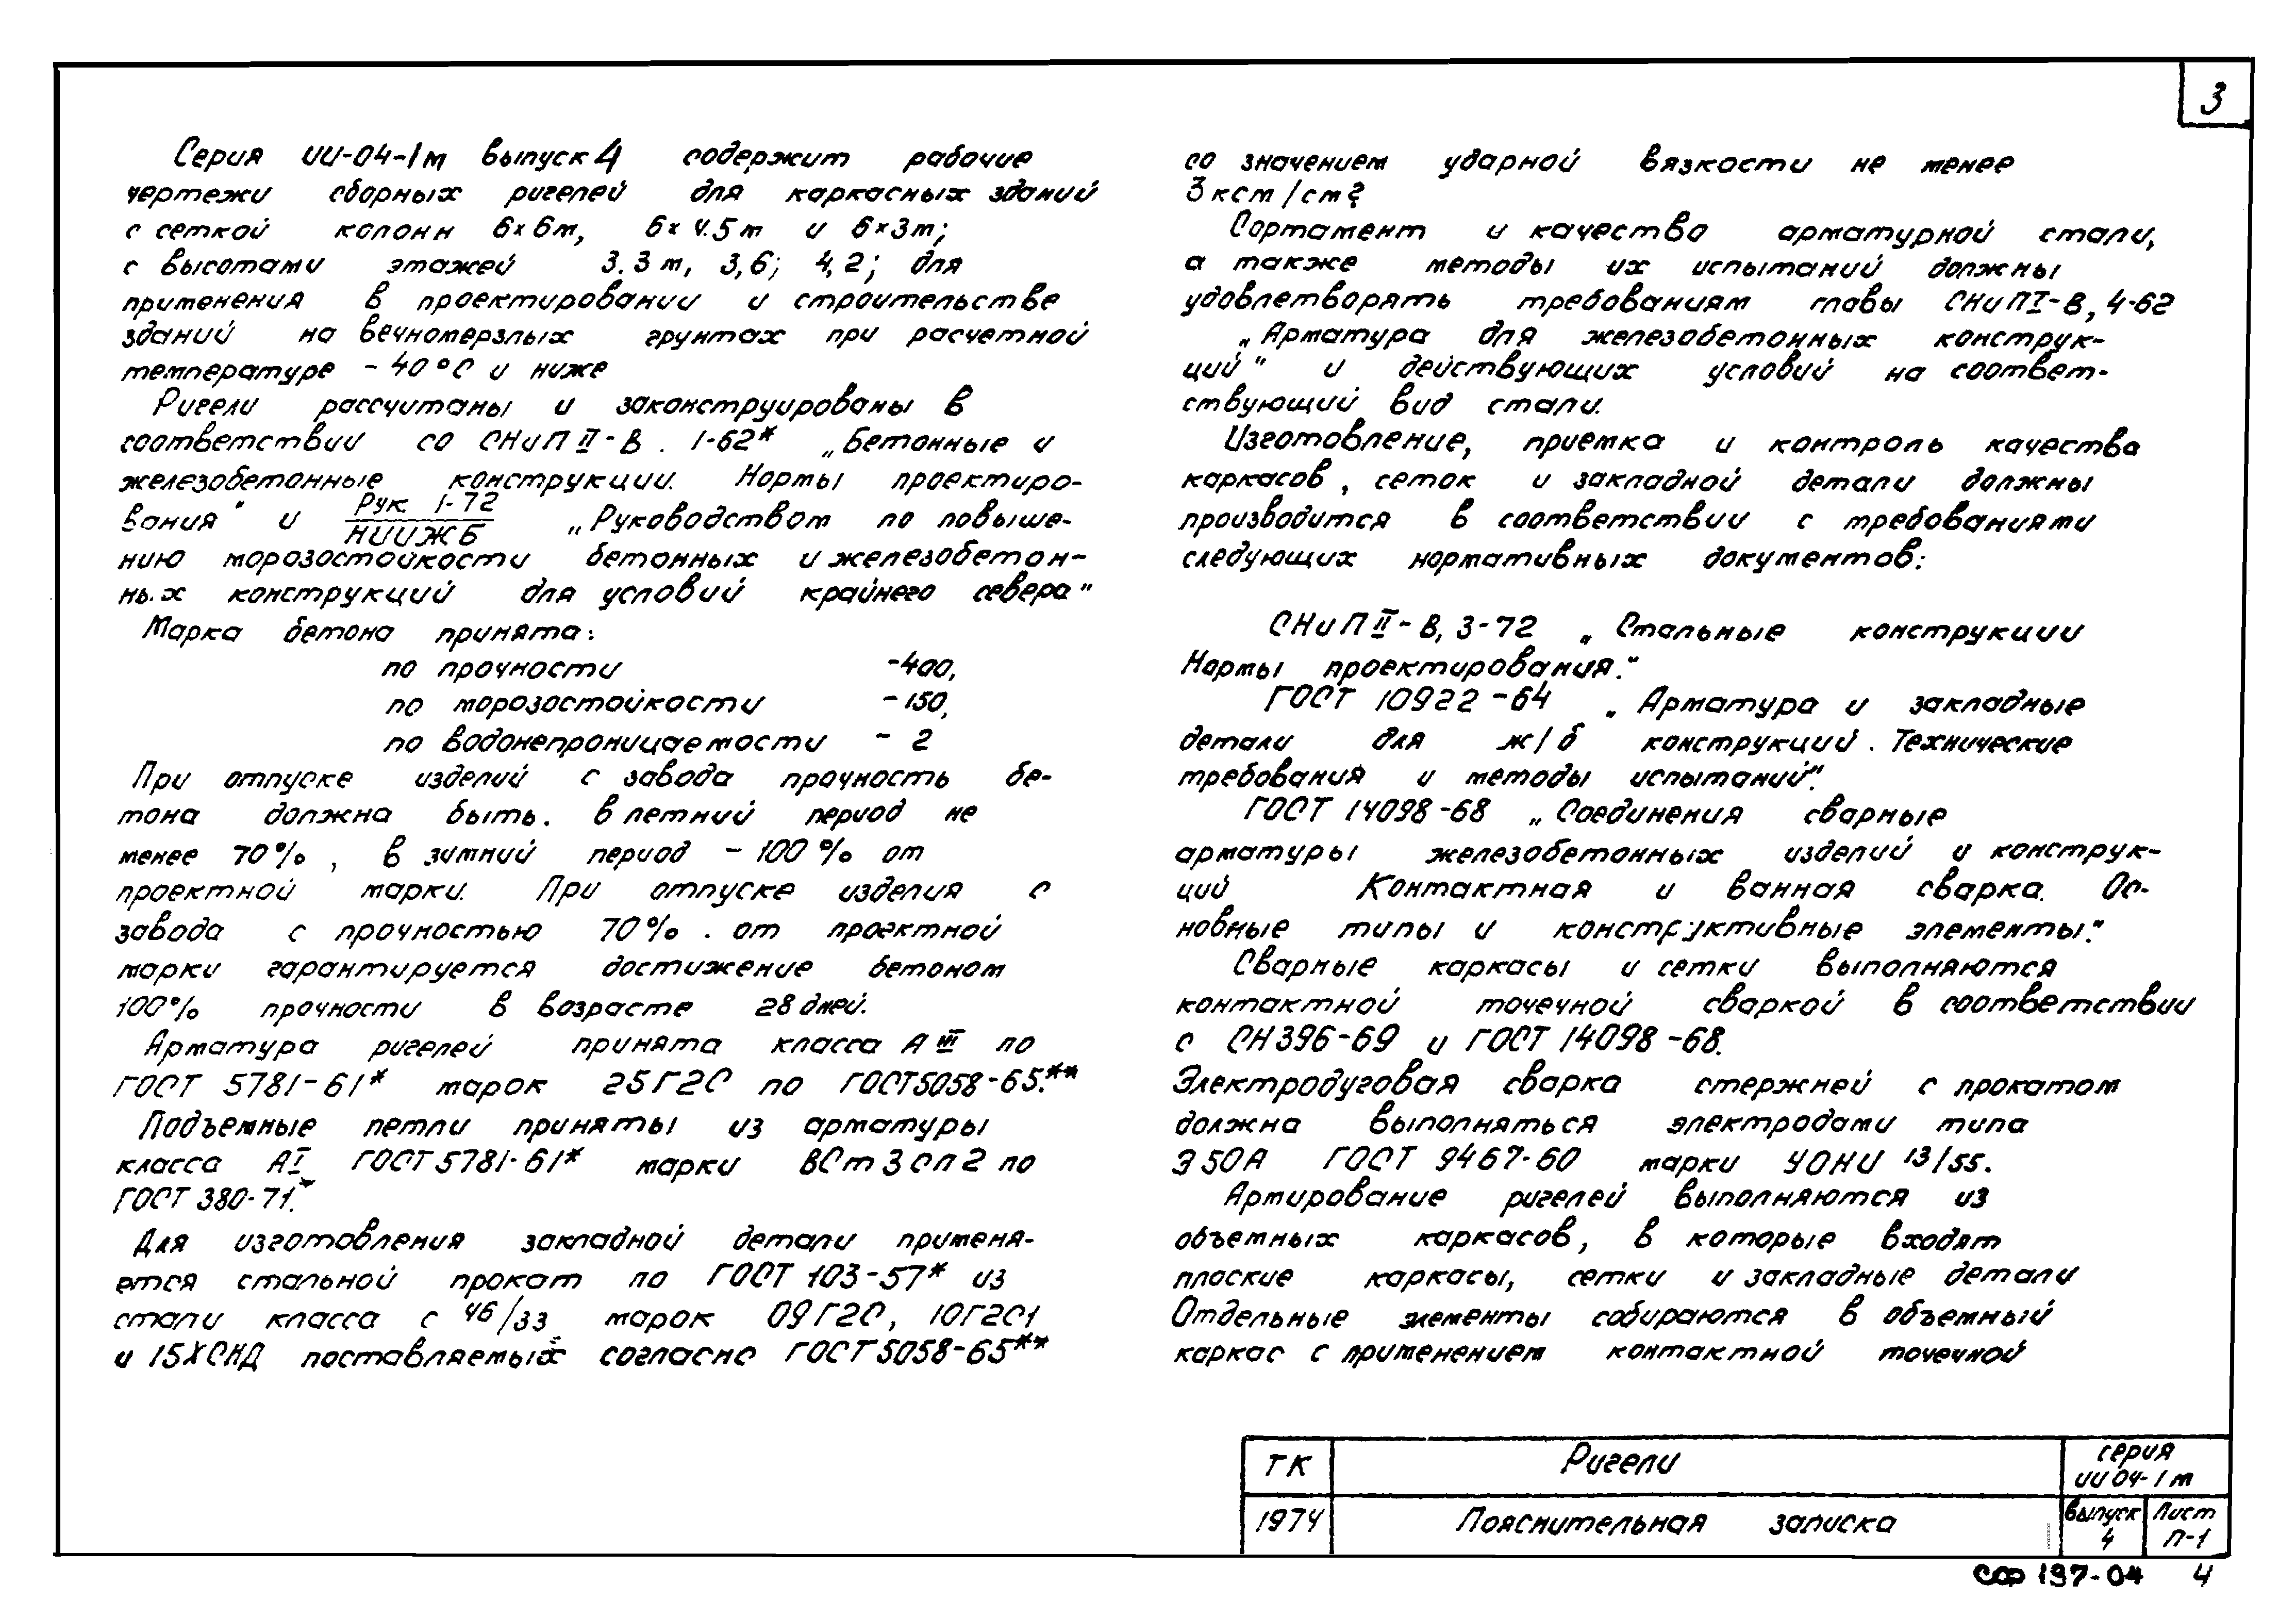 3
Серия ИИ-04-1м выпуск 4 содержит рабочие
чертежи сборных ригелей для каркасных зданий
с сеткой колонн 6×6м, 6×4.5м и 6×3м;
с высотами этажей 3.3м, 3,6; 4,2; для
применения в проектировании и строительстве
зданий на вечномерзлых грунтах при расчетной
температуре -40°С и ниже
Ригели рассчитаны и законструированы в
соответствии со СНиП II-В. 1-62* „Бетонные и
железобетонные конструкции. Нормы проектиро-
вания" и Рук 1-72/НИИЖБ „Руководством по повыше-
нию морозостойкости бетонных и железобетон-
ных конструкций для условий крайнего севера"
Марка бетона принята:
по прочности -400,
по морозостойкости -150,
по водонепроницаемости - 2
При отпуске изделий с завода прочность бе-
тона должна быть. в летний период не
менее 70%, в зимний период - 100% от
проектной марки. При отпуске изделия с
завода с прочностью 70%. от проектной
марки гарантируется достижение бетоном
100% прочности в возрасте 28 дней.
Арматура ригелей принята класса А III по
ГОСТ 5781-61* марок 25Г2С по ГОСТ 5058-65.**
Подъемные петли приняты из арматуры
класса АI ГОСТ 5781-61* марки ВСт3сп2 по
ГОСТ 380-71.*
Для изготовления закладной детали применя-
ется стальной прокат по ГОСТ 103-57* из
стали класса С 46/33 марок 09Г2С, 10Г2С1
и 15ХСНД поставляемых согласно ГОСТ 5058-65**
со значением ударной вязкости не менее
3 кгм/см².
Сортамент и качество арматурной стали,
а также методы их испытаний должны
удовлетворять требованиям главы СНиП I-В, 4-62
„Арматура для железобетонных конструк-
ций" и действующих условий на соответ-
ствующий вид стали.
Изготовление, приемка и контроль качества
каркасов, сеток и закладной детали должны
производится в соответствии с требованиями
следующих нормативных документов:
СНиП II-В, 3-72 „Стальные конструкции
Нормы проектирования."
ГОСТ 10922-64 „Арматура и закладные
детали для ж/б конструкций. Технические
требования и методы испытаний".
ГОСТ 14098-68 „Соединения сварные
арматуры железобетонных изделий и конструк-
ций Контактная и ванная сварка. Ос-
новные типы и конструктивные элементы."
Сварные каркасы и сетки выполняются
контактной точечной сваркой в соответствии
с СН 396-69 и ГОСТ 14098-68.
Электродуговая сварка стержней с прокатом
должна выполняться электродами типа
Э50А ГОСТ 9467-60 марки УОНИ 13/55.
Армирование ригелей выполняются из
объемных каркасов, в которые входят
плоские каркасы, сетки и закладные детали
Отдельные элементы собираются в объемный
каркас с применением контактной точечной
ТК Ригели серия
ИИ 04-1м
1974 Пояснительная записка выпуск 4 Лист П-1
СФ 137-04 4